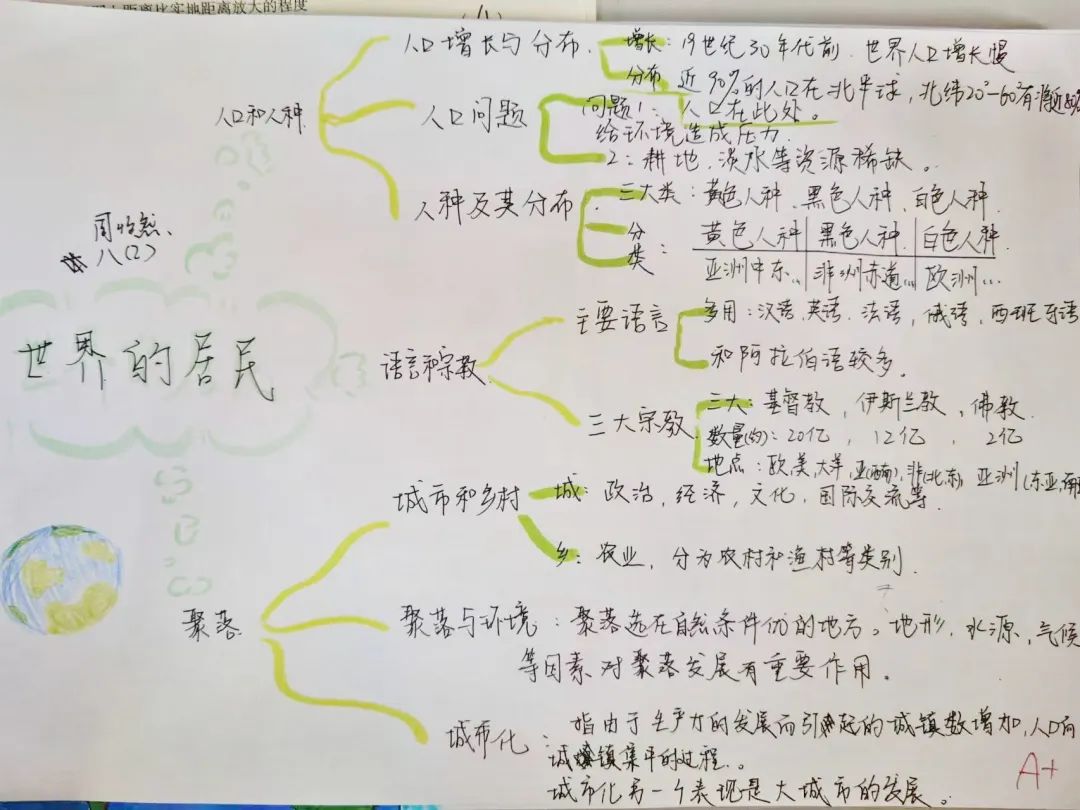 距离比实地距离放大的程度
人口和人种
人口增长与分布
增长：19世纪30年代前．世界人口增长慢
分布 近90%的人口在北半球，北纬20°-60°有
人口问题
问题1：人口在此处。
给环境造成压力
2：耕地．淡水等资源稀缺。
人种及其分布
三大类：黄色人种、黑色人种、白色人种
分类：
黄色人种 黑色人种 白色人种
亚洲中东… 非洲赤道… 欧洲…
八(2)
世界的居民
语言和宗教
主要语言
多用：汉语．英语．法语，俄语，西班牙语
和阿拉伯语较多．
三大宗教
三大：基督教，伊斯兰教，佛教
数量(约)：20亿，12亿，2亿
地点：欧，美，大洋，亚(西南)，非(北东)，亚洲(东亚，南
聚落
城市和乡村
城：政治，经济，文化，国际交流等
乡：农业，分为农村和渔村等类别．
聚落与环境：聚落选在自然条件优的地方。地形．水源，气候
等因素对聚落发展有重要作用。
城市化：指由于生产力的发展而引起的城镇数增加，人口向
城镇集中的过程。
城市化另一个表现是大城市的发展。
A+